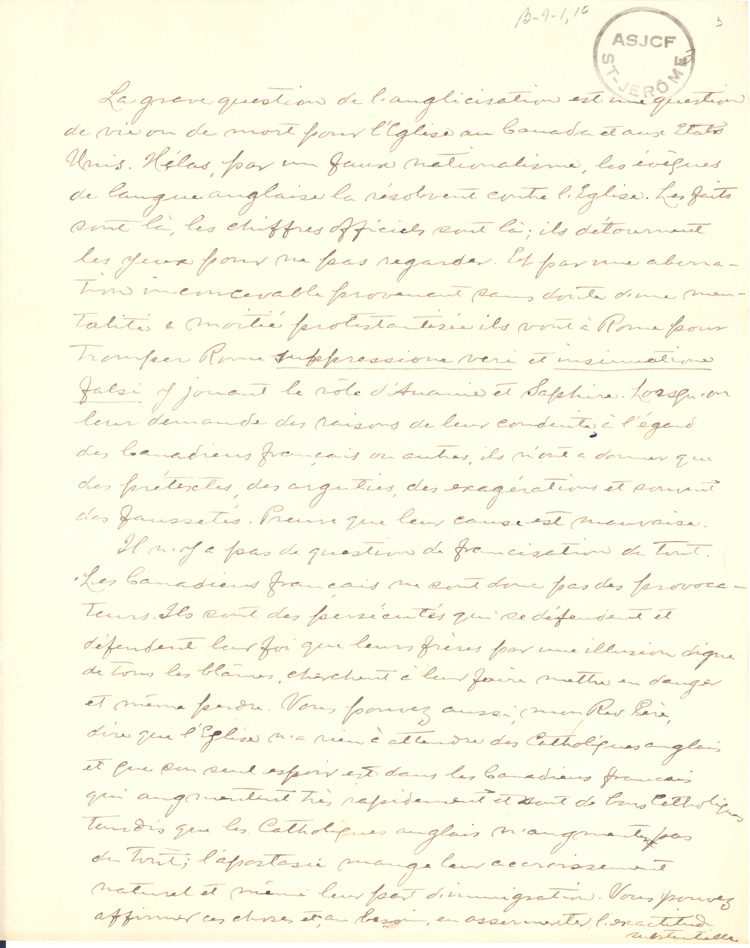 B-9-1,10
3
ASJCF
ST-JÉRÔME
La grave question de l'anglicisation est une question
de vie ou de mort pour l'Eglise au Canada et aux Etats
Unis. Hélas, par un faux nationalisme, les évêques
de langue anglaise la résolvent contre l'Eglise. Les faits
sont là, les chiffres officiels sont là; ils détournent
les yeux pour ne pas regarder. Et par une aberra-
tion inconcevable provenant sans doute d'une men-
talité à moitié protestantisée ils vont à Rome pour
tromper Rome suppressione veri et insinuatione
falsi y jouant le rôle d'Ananie et Saphire. Lorsqu'on
leur demande des raisons de leur conduite à l'égard
des Canadiens français ou autres, ils n'ont a donner que
des prétextes, des arguties, des exagérations et souvent
des faussetés. Preuve que leur cause est mauvaise.
Il n'y a pas de question de francisation du tout.
Les Canadiens français ne sont donc pas des provoca-
teurs. Ils sont des persécutés qui se défendent et
défendent leur foi que leurs frères par une illusion digne
de tous les blâmes, cherchent à leur faire mettre en danger
et même perdre. Vous pouvez aussi, mon Rev Père,
dire que l'Eglise n'a rien à attendre des Catholiques anglais
et que son seul espoir est dans les Canadiens français
qui augmentent très rapidement et sont de bons Catholiques
tandis que les Catholiques anglais n'augmentent pas
du tout; l'apostasie mange leur accroissement
naturel et même leur part d'immigration. Vous pouvez
affirmer ces choses et, au besoin, en assermenter l'exactitude
substantielle